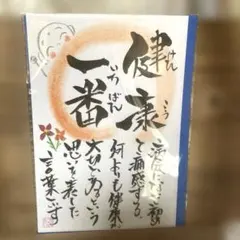 健康
けんこう
一番
いちばん
病気になって初め
て痛感する。
何よりも健康が
大切であるという
思いを表した
言葉です